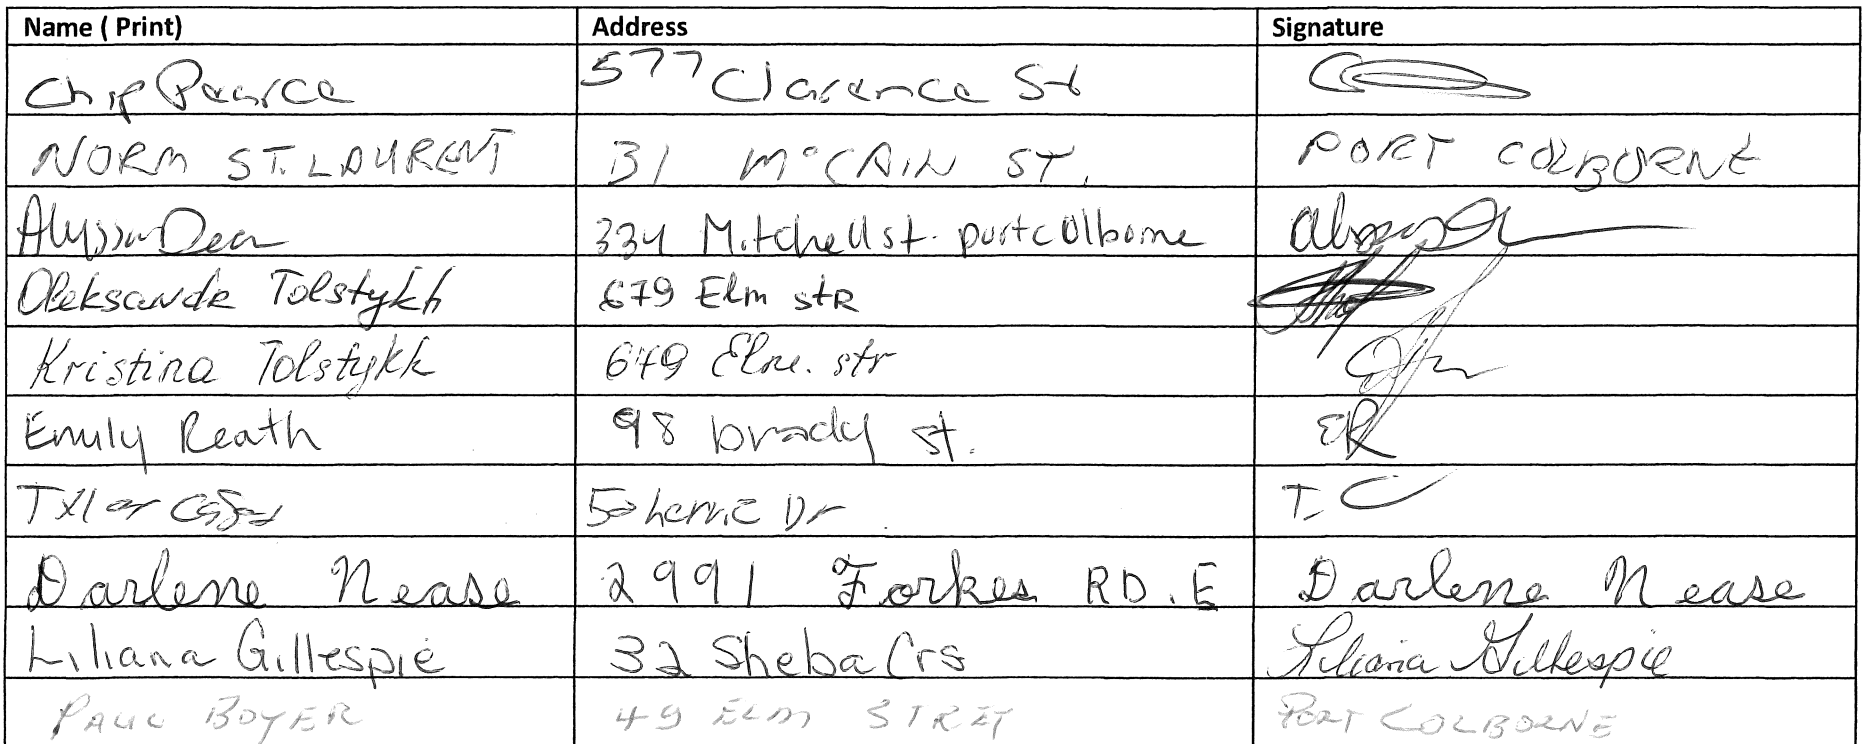 Name ( Print) Address Signature
Chip Pearce 577 Clarence St
NORM ST. LAURENT 31 McCAIN ST. PORT COLBORNE
Alyssa Dean 334 Mitchell st. port colborne
Oleksandr Tolstykh 679 Elm stR
Kristina Tolstykh 679 Elm. str
Emily Reath 98 brady st. ER
Tyler Dr T.C
Darlene Nease 2991 Forkes RD. E Darlene Nease
Liliana Gillespie 32 Sheba Crs Liliana Gillespie
PAUL BOYER 49 ELM STRET PORT COLBORNE